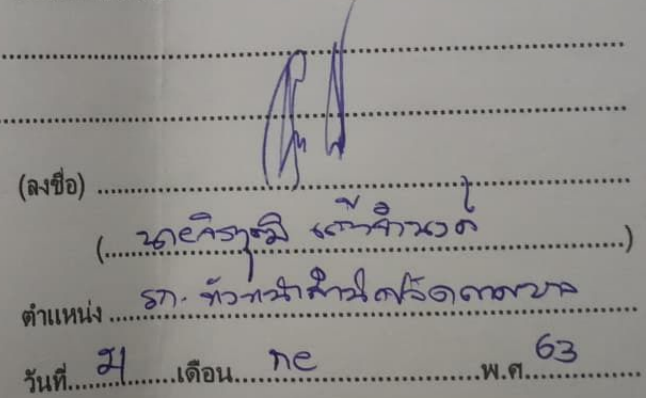 (ลงชื่อ)
(นายจิรวุฒิ แก้วจำนงค์)
ตำแหน่ง รก. หัวหน้าสำนักปลัดเทศบาล
วันที่ 21 เดือน กย พ.ศ. 63